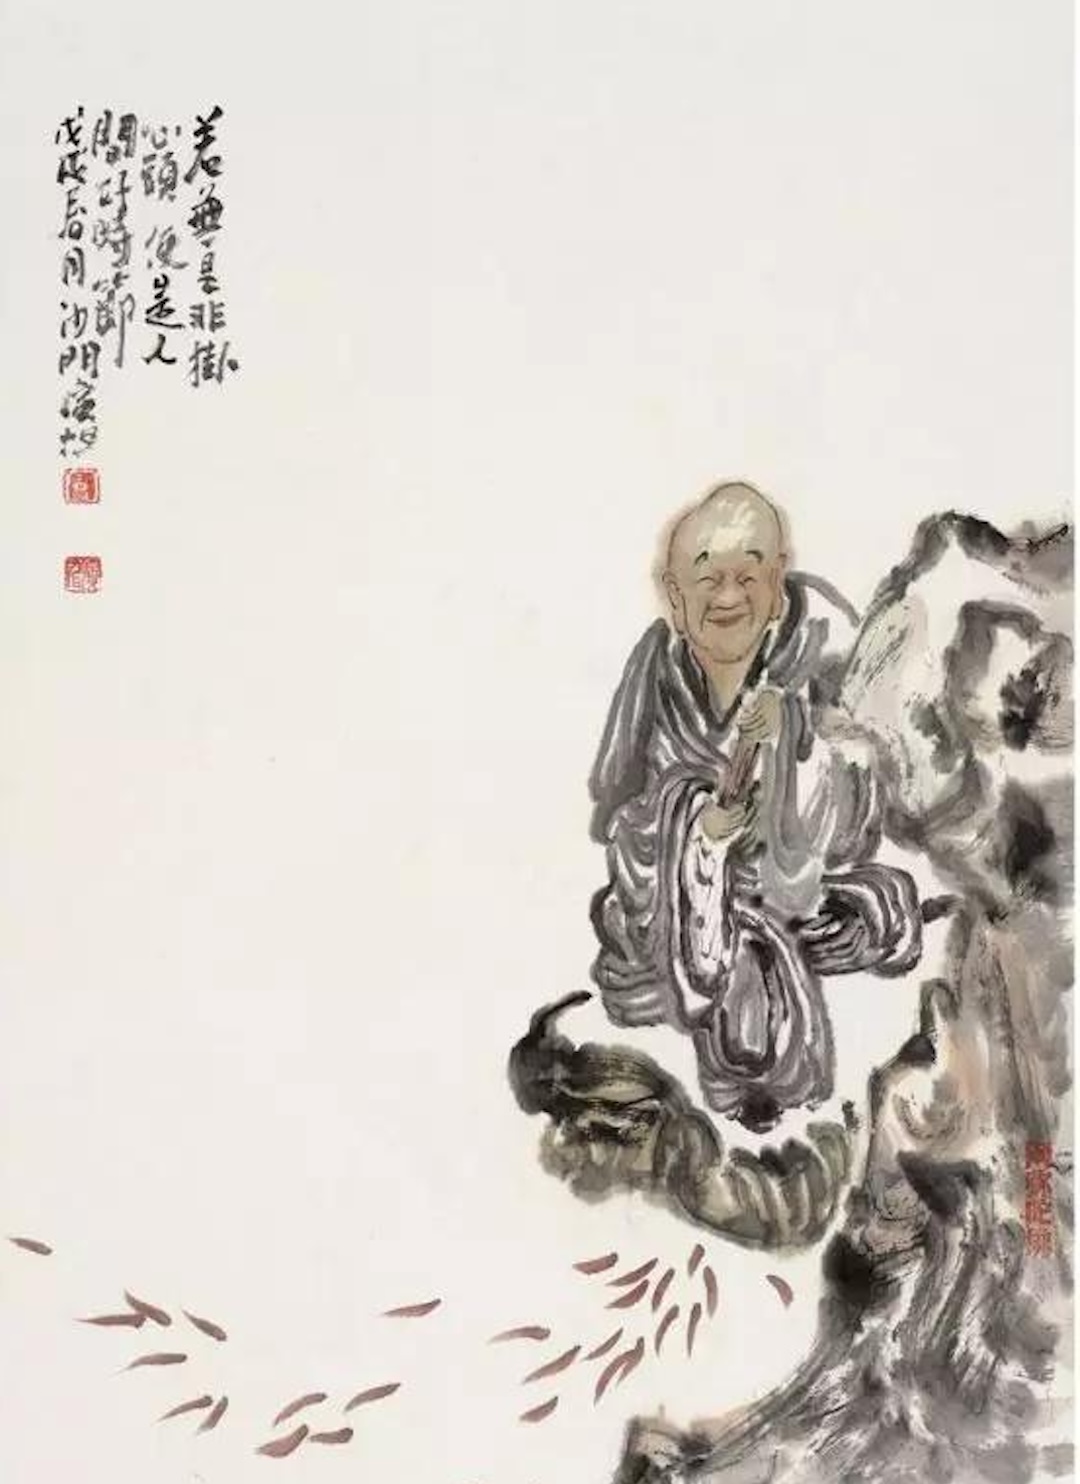 若無是非掛
心頭便是人
間好時節
戊戌春月沙門演